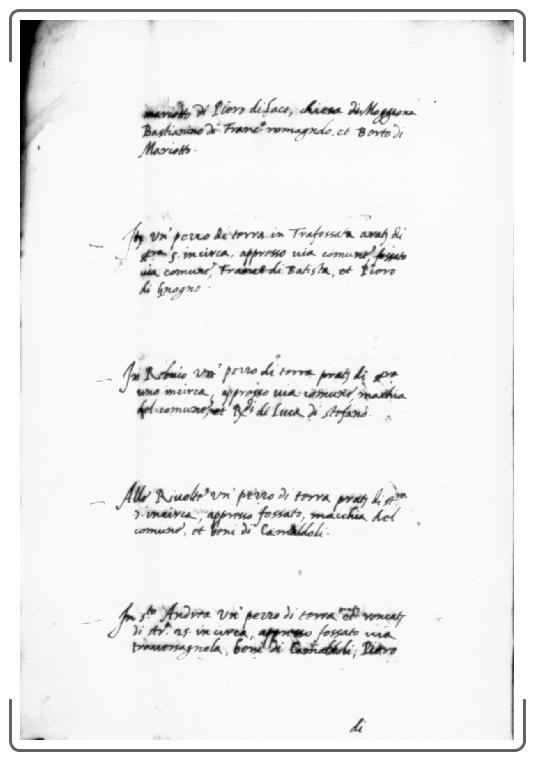 mariotto di Piero di Laco, chiesa di Moggiona
Bastianino di Franc.o romagnolo, et Berto di
Mariotto.
Itẽ Un' pezzo di terra in Trafossata arati di
stra 5. incirca, appresso via comune, fossato
via comune, Franc.o di Batista, et Piero
di Gnogne.
In Rebuio un' pezzo di terra prati di stro
uno incirca, appresso via comune, macchia
del comune, et R.di di Luca di stefano.
Alle Rivolte un' pezzo di terra prati di stra
incirca, appresso fossato, macchia del
comune, et beni di Camaldoli.
In s.to Andrea Un' pezzo di terra et roncati
di str.a 25. incirca, appresso fossato via
traversagnola, beni di Camaldoli, Piero
di